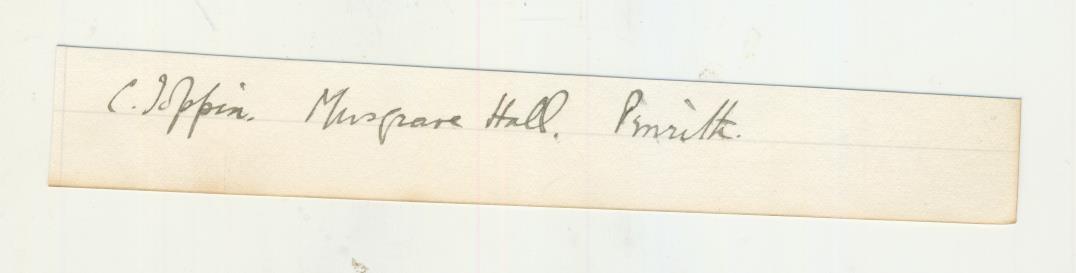 C. Toppin. Musgrave Hall. Penrith.